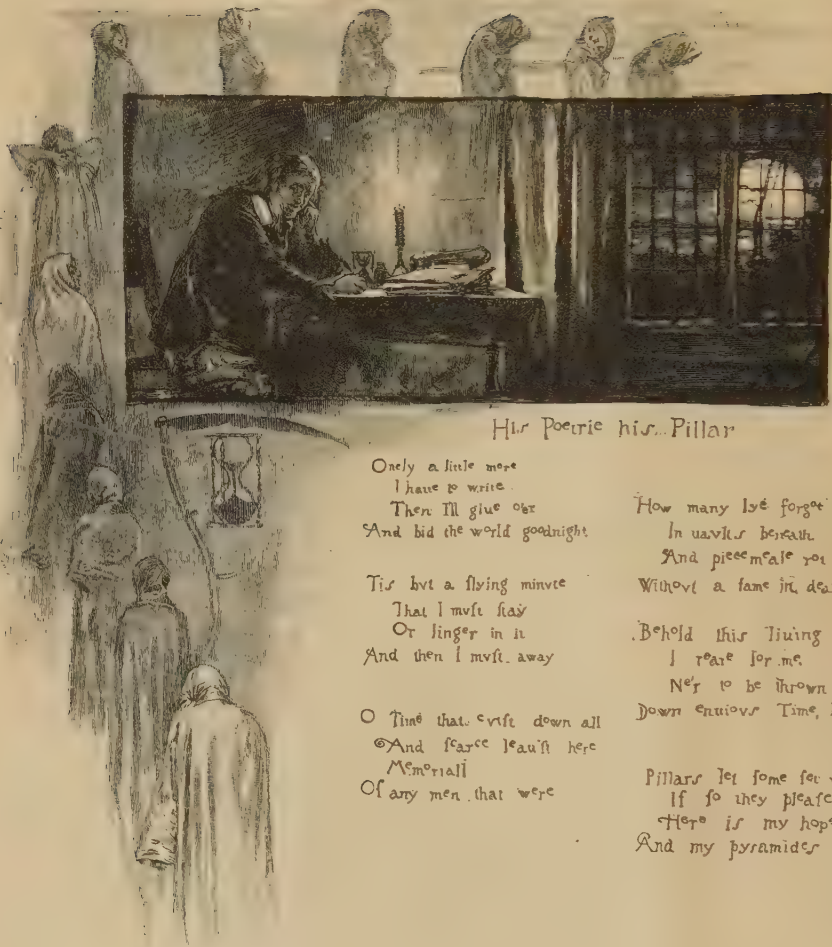 His Poetrie his...Pillar
Onely a little more
I haue to write
Then I'll giue o'er
And bid the world goodnight
Tis bvt a flying minvte
That I mvſt ſtay
Or linger in it
And then I mvſt away
O Time that cvtſt down all
And ſcarce leau'ſt here
Memoriall
Of any men that were
How many lye forgot
In vavlts beneath
And piecemeale rot
Withovt a fame in
Behold this liuing
I reare for me
Ne'r to be thrown
Down enuiovs Time,
Pillars let ſome ſet
If ſo they pleaſe
Here is my hope
And my pyramides